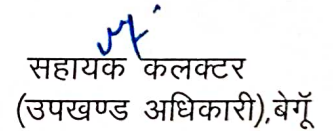 सहायक कलक्टर
(उपखण्ड अधिकारी),बेगूॅं